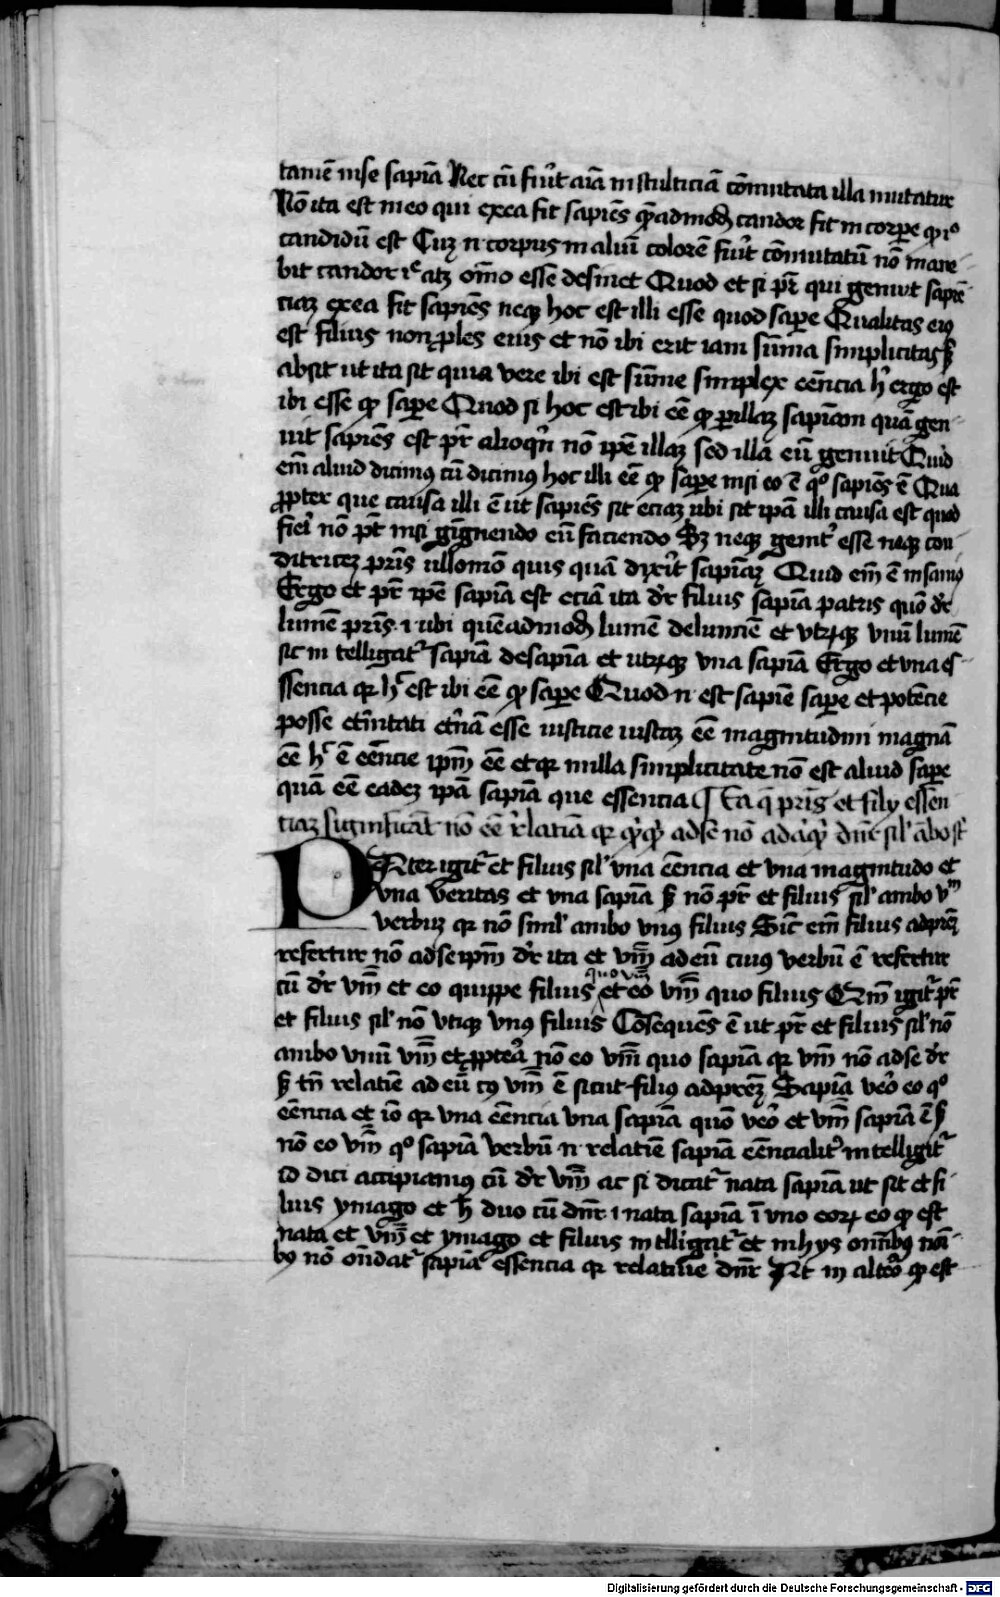 tamē in se sapīa Nec cū fūit aīa in stulticiā cōmutata illa mutatur
Nō ita est in eo qui ex ea fit sapiēs q̄admodū candor fit in corpe
candidū est corpus in aliū colorē fūit cōmutatū nō mane-
bit candor atq om̄o esse desinet Quod et si pr̄ qui genuit sapiē-
ciaz ex ea fit sapiēs neq hoc est illi esse quod sape Qualitas eiꝰ
est filius non ples eius et nō ibi erit iam sūma simplicitas
absit ut ita sit quia vere ibi est sūme simplex eēncia ergo est
ibi esse qd sape Quod si hoc est ibi eē qd sape p illaz sapīam quā gen-
uit sapiēs est pr̄ alioqn̄ nō ipē illaz sed illa eū genuit Quid
em̄ aliud dicimꝰ cū dicimꝰ hoc illi eē qd sape nisi eo ē qo sapiēs ē Qua
ꝓpter que causa illi ē ut sapiēs sit eciaz ubi sit ipā illi causa est quod
fieri nō pt̄ nisi gignendo eū faciendo Sz neq genit esse neq con-
ditricez pr̄is ullomō quis quā dixit sapīaz Quid em̄ ē insaniꝰ
Ergo et pr̄ ipē sapīa est eciā ita dr̄ filius sapīa patris quō dr̄
lumē pr̄is ubi quēadmodū lumē de lumīe et vtrūq vnū lumē
sic intelligat sapīa de sapīa et utrūq vna sapīa Ergo et vna es-
ssencia qr est ibi eē qd sape Quod est sapīe sape et potēcie
posse etn̄itati etn̄ā esse iusticie iustaz eē magnitudini magnā
eē ē eēncie ipm̄ eē et qr in illa simplicitate nō est aliud sape
quā eē eadez ipā sapīa que essencia ¶ Ea q̄ pr̄is et filij essen-
tiaz significāt nō eē relatīa qr ad se nō ad aliqd dn̄r sil ābo
Pater igit et filius sil vna eēncia et vna magnitudo et
vna veritas et vna sapīa nō pr̄ et filius sil ambo vm̄
verbuz qr nō simil ambo vnꝰ filius Sic em̄ filius ad prēz
refertur nō ad se ipm̄ dr̄ ita et vm̄ ad eū cuiꝰ verbū ē refertur
cū dr̄ vm̄ et eo quippe filius quo vm̄ et eo vm̄ quo filius Qm̄ igit pr̄
et filius sil nō vtiq vnꝰ filius Cōsequēs ē ut pr̄ et filius sil nō
ambo vnū vm̄ et ꝓpterea nō eo vm̄ quo sapīa qr vm̄ nō ad se dr̄
tn̄ relatīe ad eū cꝰ vm̄ ē sicut filiꝰ ad prēz Sapīa vēo eo qo
eēncia et iō qr vna eēncia vna sapīa quō vēo et vm̄ sapīa ē
nō eo vm̄ qo sapīa verbū relatīe sapīa eēncialit intelligit
id dici accipiamꝰ cū dr̄ vm̄ ac si dicat nata sapīa ut sit et fi-
lius ymago et duo cū dn̄r nata sapīa ī vno eoꝝ eo qd est
nata et vm̄ et ymago et filius intelligat et in hijs om̄ibꝰ nōi-
bꝰ nō ondat sapīa essencia qr relatiue dn̄r At in altēo qd est
Digitalisierung gefördert durch die Deutsche Forschungsgemeinschaft - DFG